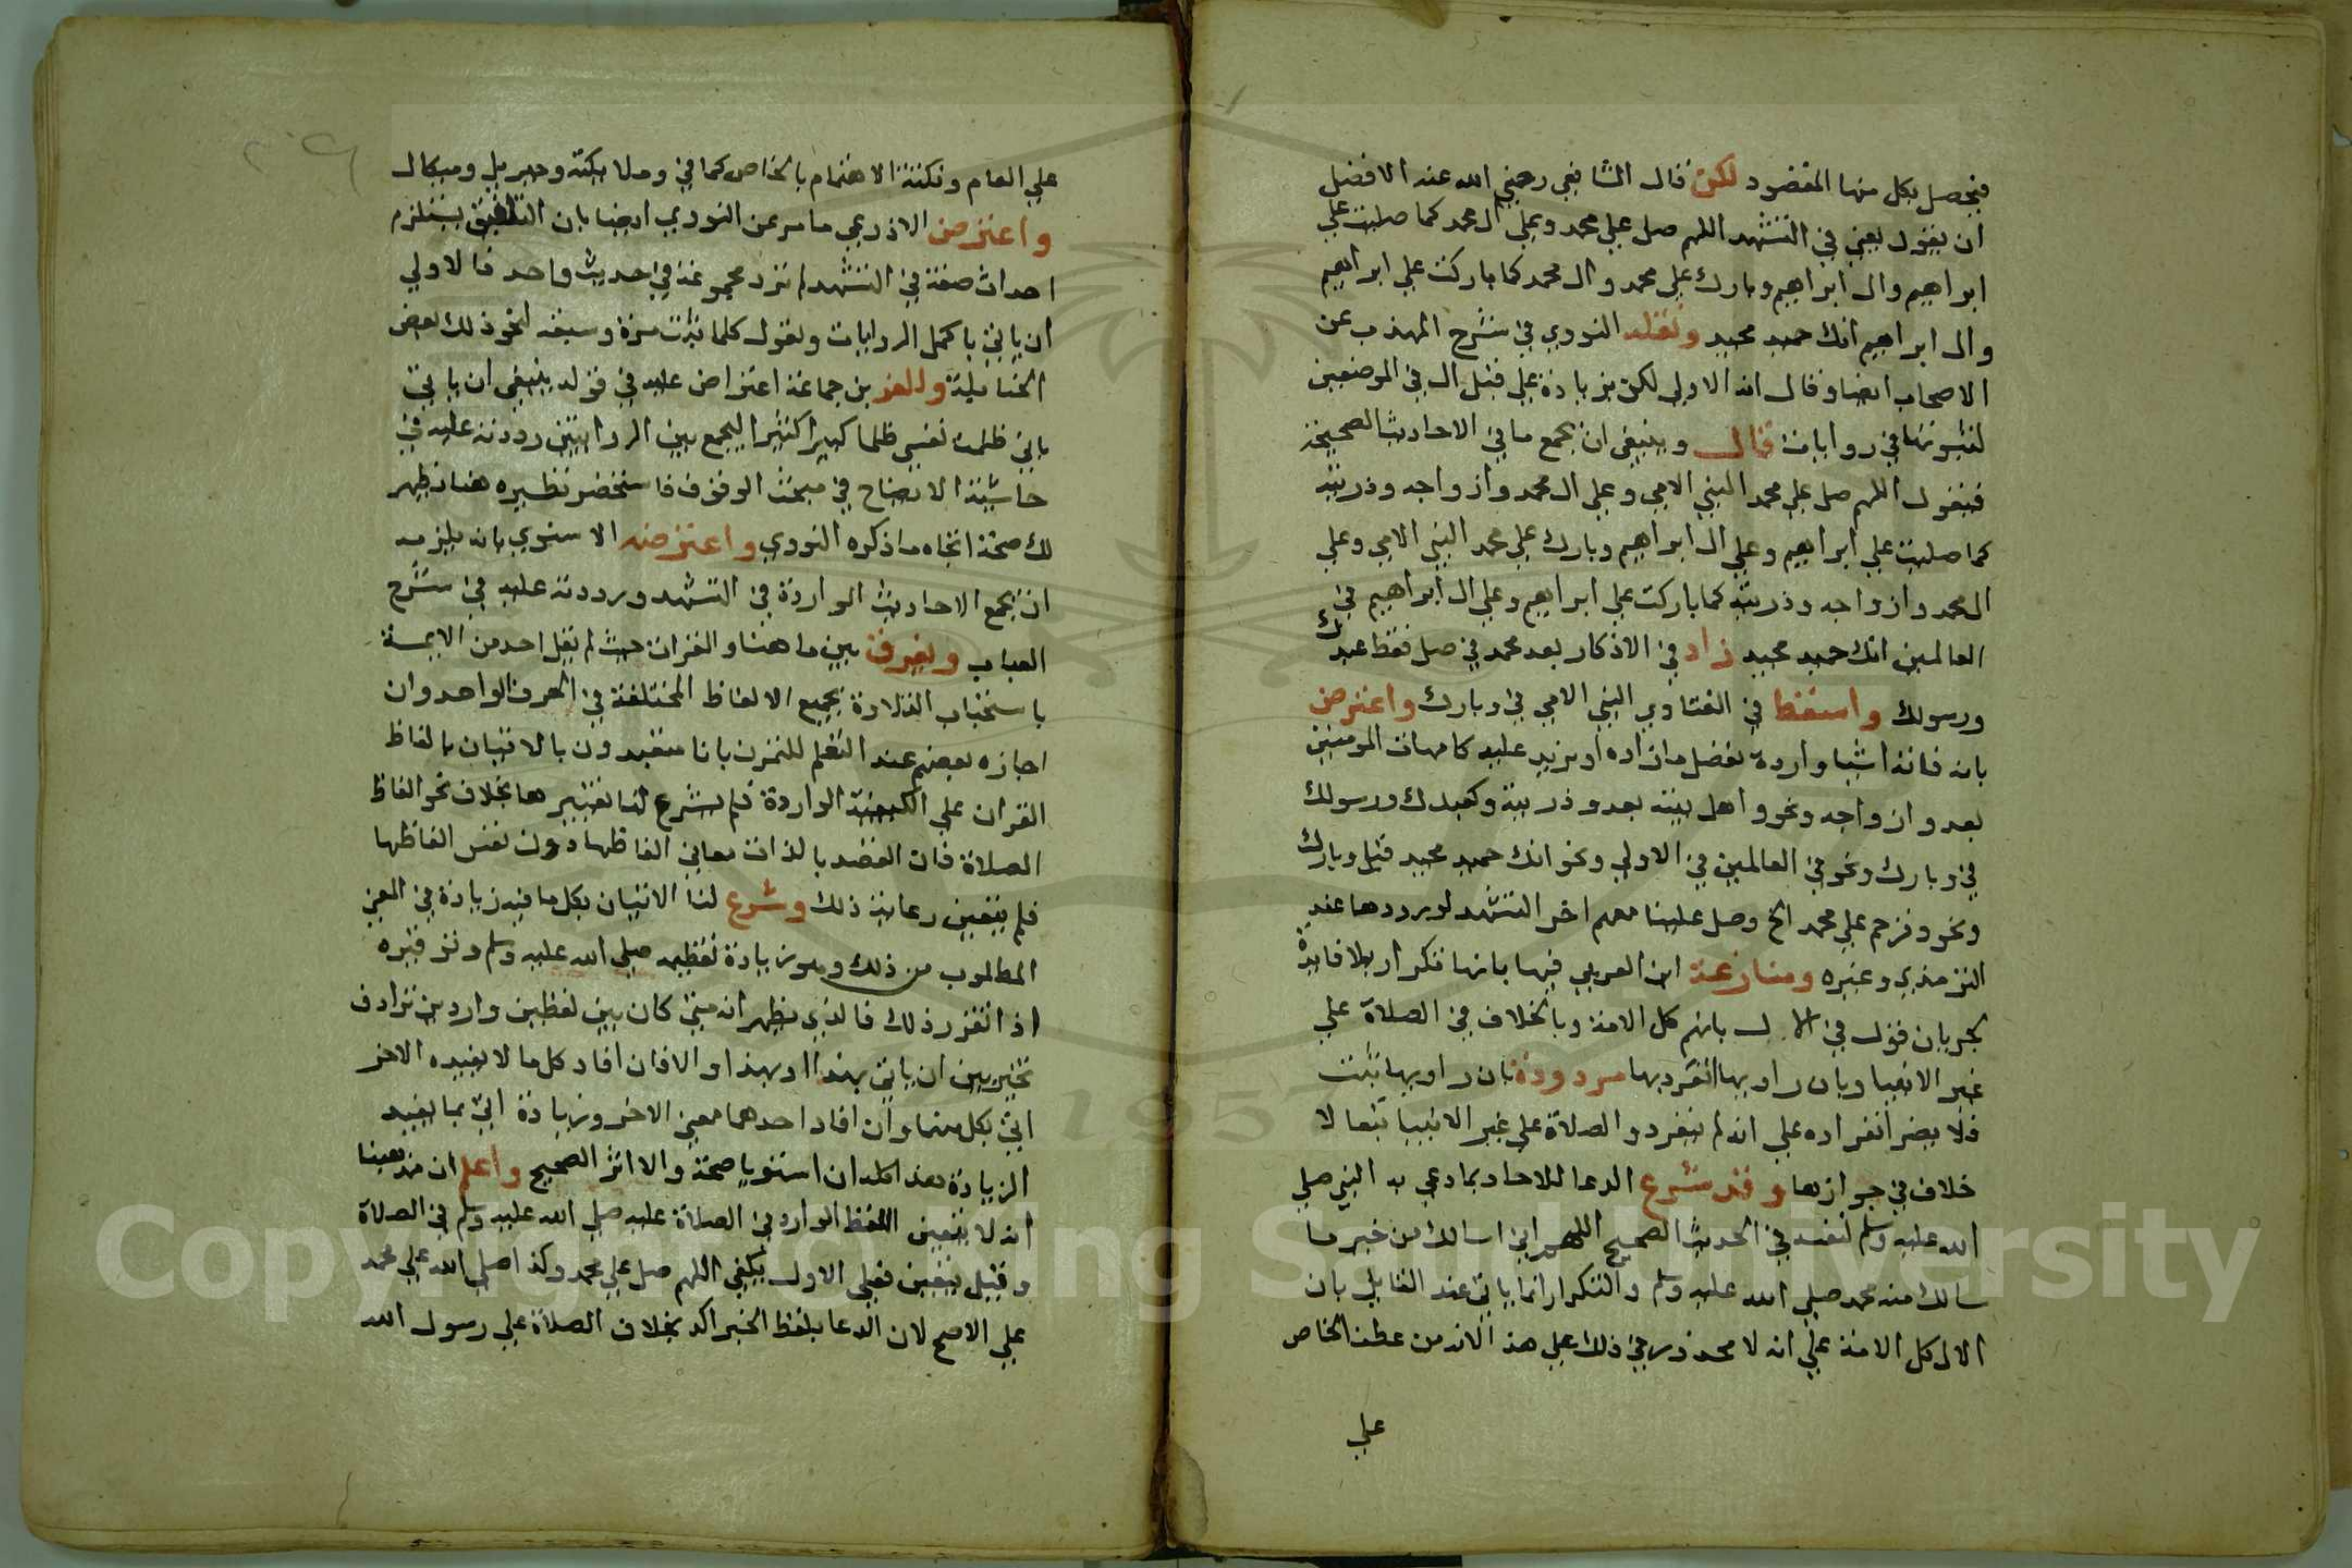 فيحصل بكل منها المقصود لكن قال الشافعي رضي الله عنه الافضل
ان يقول يعني في التشهد اللهم صل علي محمد وعلي ال محمد كما صليت علي
ابراهيم وال ابراهيم وبارك علي محمد وال محمد كما باركت علي ابراهيم
وال ابراهيم انك حميد مجيد ونقله النووي في شرح المهذب عن
الاصحاب ايضا وقال انه الاولي لكن بزيادة علي قبل ال في الموضعين
لثبوتها في روايات قال وينبغي ان يجمع ما في الاحاديث الصحيحة
فيقول اللهم صل علي محمد النبي الامي وعلي ال محمد وازواجه وذريته
كما صليت علي ابراهيم وعلي ال ابراهيم وبارك علي محمد النبي الامي وعلي
ال محمد وازواجه وذريته كما باركت علي ابراهيم وعلي ال ابراهيم في
العالمين انك حميد مجيد زاد في الاذكار بعد محمد في صل فقط عبدك
ورسولك واسقط في الفتاوي النبي الامي في وبارك واعترض
بانه فاته اشيا واردة تفضل ما زاده او تزيد عليه كامهات المومنين
بعد وازواجه ونحو واهل بيته بعد وذريته وكعبدك ورسولك
في وبارك ونحو في العالمين في الاولي ونحو انك حميد مجيد قبل وبارك
ونحو وترحم علي محمد الخ وصل علينا معهم اخر التشهد لورودها عند
الترمذي وغيره ومنازعة ابن العربي فيها بانها تكرار بلا فايدة
لجريان قول في الال بانهم كل الامة وبالخلاف في الصلاة علي
غير الانبيا وبان راويها انفرد بها مردودة بان راويها ثبت
فلا يضر انفراده علي انه لم ينفرد والصلاة علي غير الانبيا تبعا لا
خلاف في جوازها وقد شرع الدعا للاحاد بما دعي به النبي صلي
الله عليه وسلم لنفسه في الحديث الصحيح اللهم اني اسالك من خير ما
سالك منه محمد صلي الله عليه وسلم والتكرار انما ياتي عند القايل بان
الال كل الامة علي انه لا محذور في ذلك علي هذا لانه من عطف الخاص
علي
علي العام ونكتته الاهتمام بالخاص كما في وملايكته وجبريل وميكال
واعترض الاذرعي ما مر عن النووي ايضا بان التلفيق يستلزم
احداث صفة في التشهد لم ترد مجموعة في حديث واحد فالاولي
ان ياتي باكمل الروايات ويقول كلما ثبت مرة وسبقه لنحو ذلك بعض
الحنابلة وللعز بن جماعة اعتراض عليه في قوله ينبغي ان ياتي
باني ظلمت نفسي ظلما كبيرا كثيرا ليجمع بين الروايتين رددته عليه في
حاشية الايضاح في مبحث الوقوف فاستحضر نظيره هنا يظهر
لك صحة اتجاه ما ذكره النووي واعترضه الاسنوي بانه يلزمه
ان يجمع الاحاديث الواردة في التشهد ورددته عليه في شرح
العباب ويفرق بين ما هنا والقران حيث لم يقل احد من الايمة
باستحباب التلاوة بجميع الالفاظ المختلفة في الحرف الواحد وان
اجازه بعضهم عند التعلم للتمرن بانا متعبدون بالاتيان بالفاظ
القران علي الكيفية الواردة فلم يشرع لنا تغييرها بخلاف نحو الفاظ
الصلاة فان القصد بالذات معاني الفاظها دون نفس الفاظها
فلم يتعين رعاية ذلك وشرع لنا الاتيان بكل ما فيه زيادة في المعني
المطلوب من ذلك وهو زيادة تعظيمه صلي الله عليه وسلم وتوقيره
اذا تقرر ذلك فالذي يظهر انه متي كان بين لفظين واردين ترادف
تخير بين ان ياتي بهذا او بهذا والا فان افاد كل ما لا يفيده الاخر
اتي بكل منهما وان افاد احدهما معني الاخر وزيادة اتي بما يفيد
الزيادة هذا كله ان استويا صحة والا اثر الصحيح واعلم ان مذهبنا
انه لا يتعين اللفظ الوارد في الصلاة عليه صلي الله عليه وسلم في الصلاة
وقيل يتعين فعلي الاول يكفي اللهم صل علي محمد وكذا صلي الله علي محمد
علي الاصح لان الدعا بلفظ الخبر اكد بخلاف الصلاة علي رسول الله
Copyright King Saud University
1957